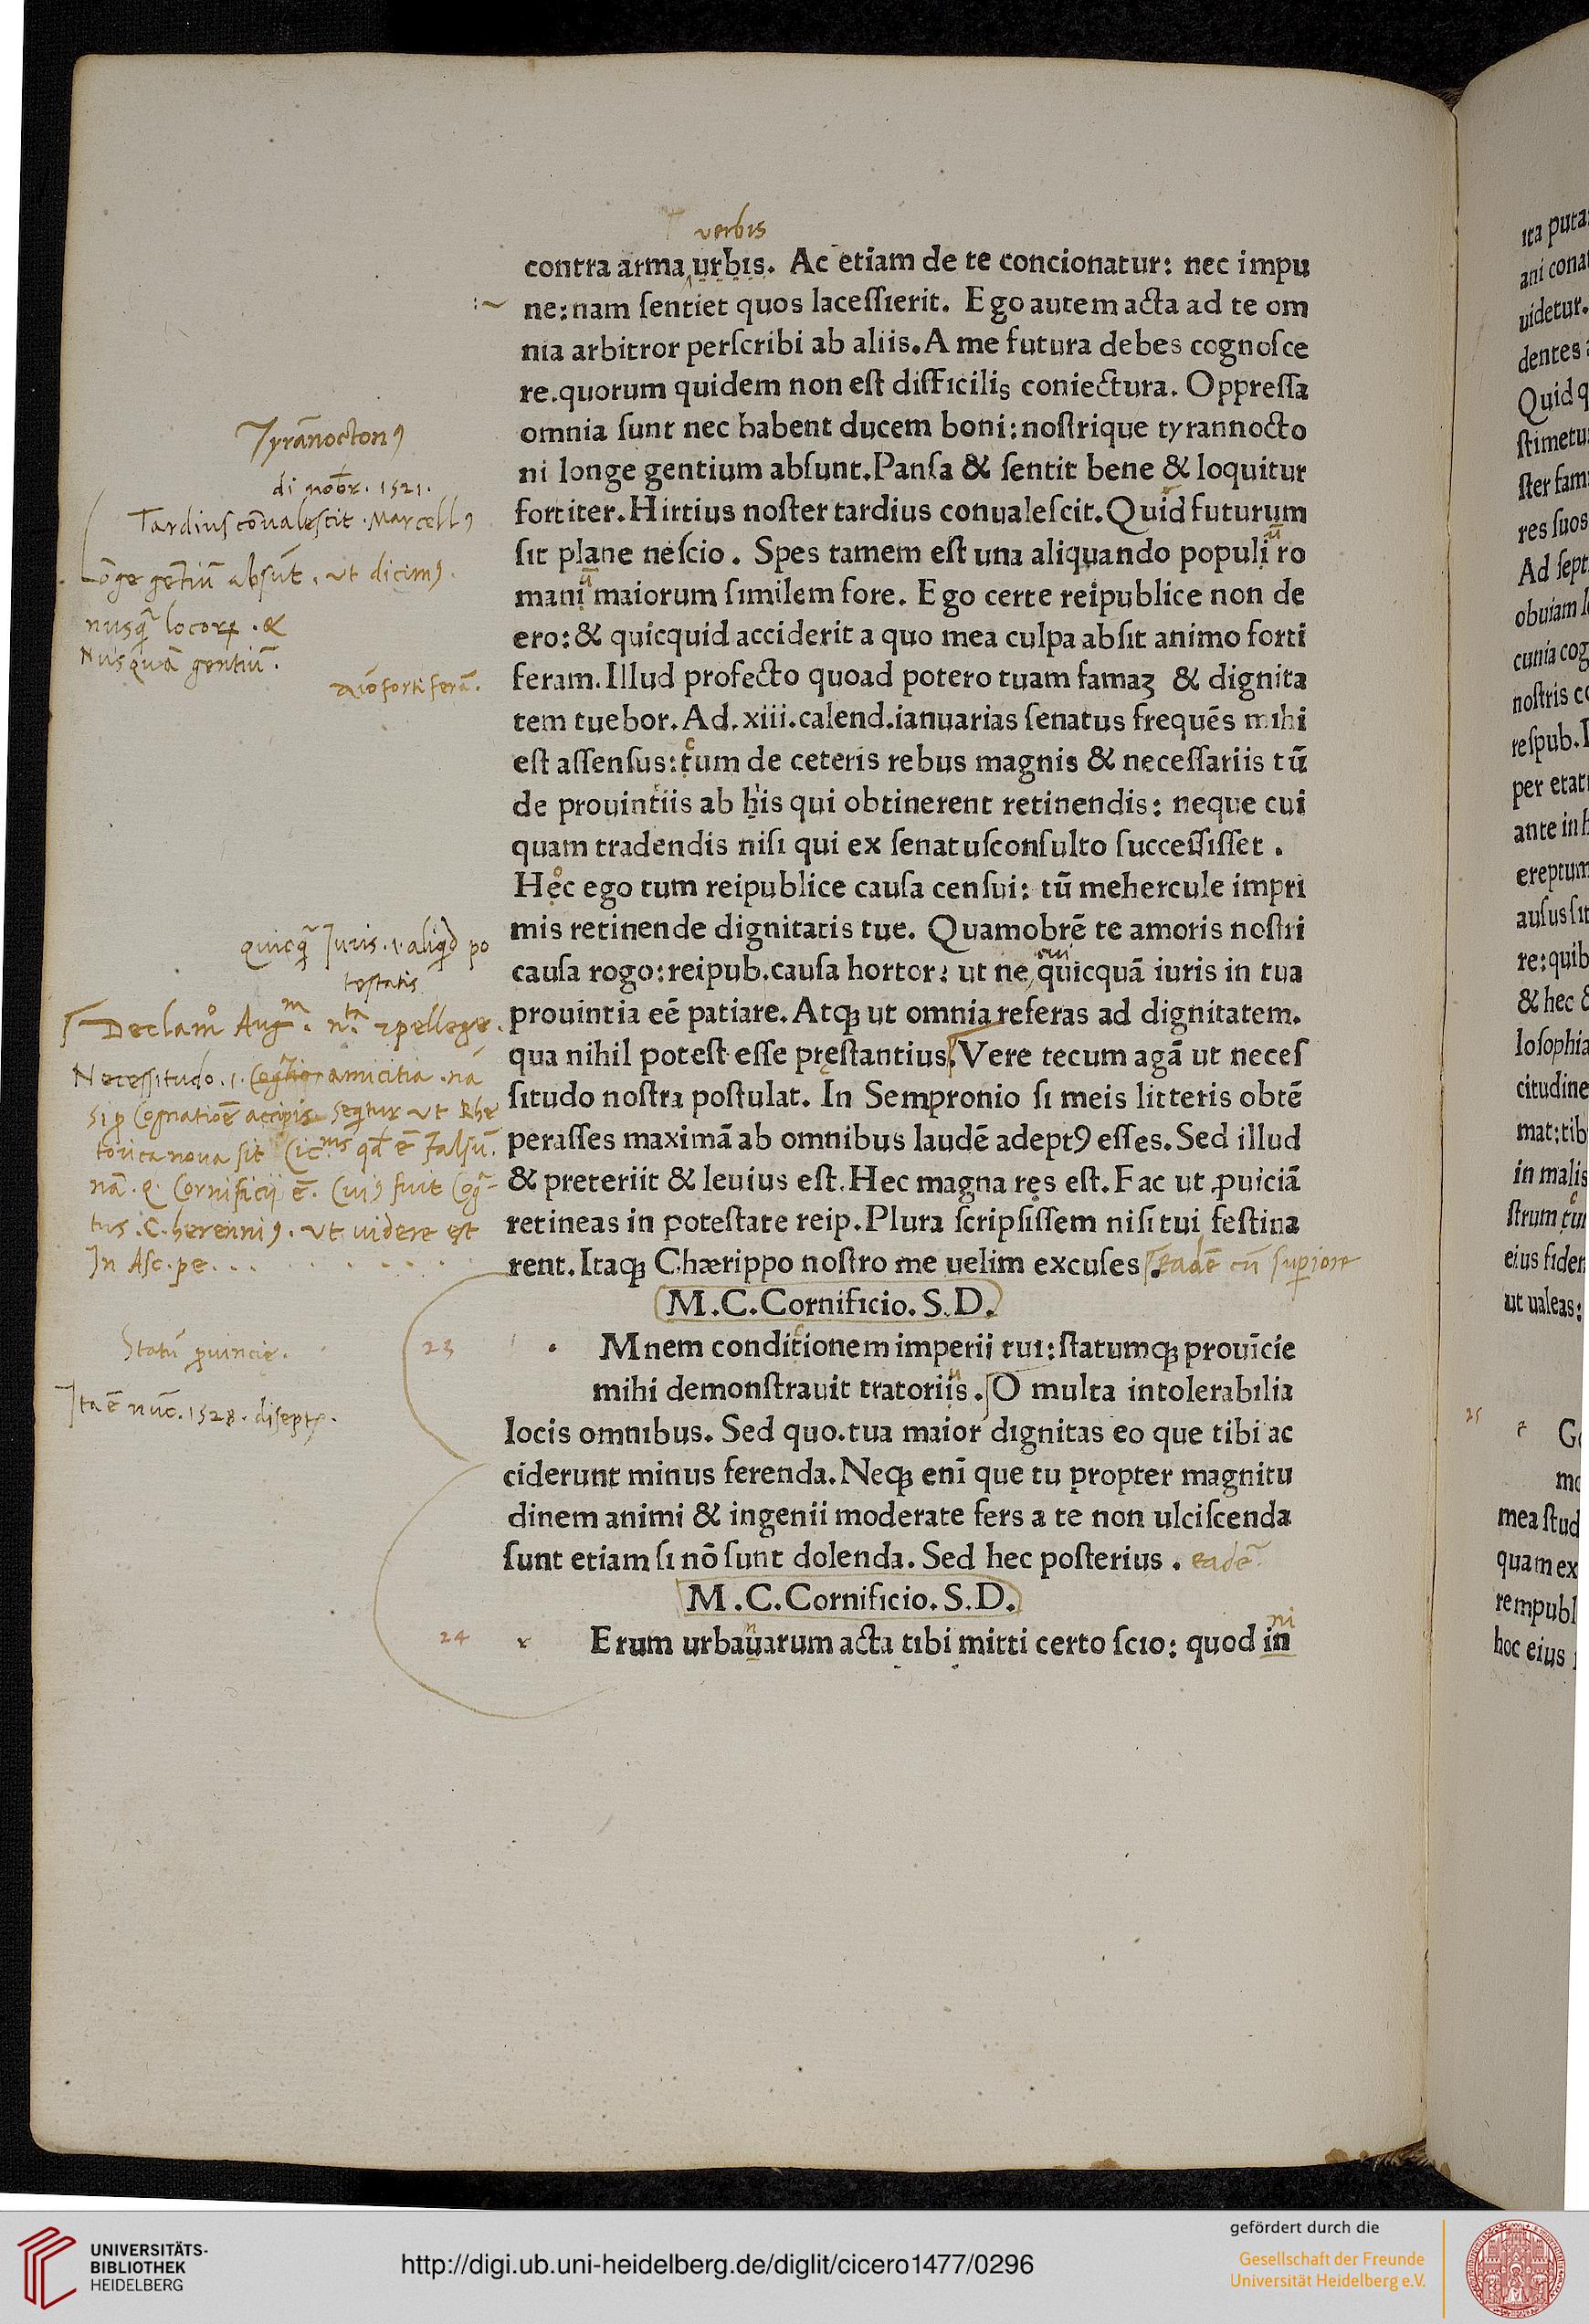 verbis
contra arma urbis. Ac etiam de te concionatur: nec impu
ne:nam ſentiet quos laceſſierit. Ego autem acta ad te om
nia arbitror perſcribi ab aliis. A me futura debes cognoſce
re. quorum quidem non eſt difficilis coniectura. Oppreſſa
omnia ſunt nec habent ducem boni: noſtrique tyrannocto
ni longe gentium abſunt. Panſa & ſentit bene & loquitur
fortiter. Hirtius noſter tardius conualeſcit. Quid futurum
ſit plane neſcio. Spes tamem eſt una aliquando populi ro
mani maiorum ſimilem fore. Ego certe reipublice non de
ero: & quicquid acciderit a quo mea culpa abſit animo forti
feram. Illud profecto quoad potero tuam famaꝫ & dignita
tem tuebor. Ad. xiii. calend. ianuarias ſenatus frequēs mihi
eſt aſſenſus: tum de ceteris rebus magnis & neceſſariis tū
de prouintiis ab his qui obtinerent retinendis: neque cui
quam tradendis niſi qui ex ſenatuſconſulto ſucceſſiſſet.
Hęc ego tum reipublice cauſa cenſui: tū mehercule impri
mis retinende dignitatis tue. Quamobrē te amoris noſtri
cauſa rogo: reipub. cauſa hortor: ut ne quicquā iuris in tua
prouintia eē patiare. Atqꝫ ut omnia referas ad dignitatem.
qua nihil poteſt eſſe pręſtantius. Vere tecum agā ut neceſ
ſitudo noſtra poſtulat. In Sempronio ſi meis litteris obtē
peraſſes maximā ab omnibus laudē adeptꝰ eſſes. Sed illud
& preteriit & leuius eſt. Hec magna res eſt. Fac ut ꝓuiciā
retineas in poteſtate reip. Plura ſcripſiſſem niſi tui feſtina
rent. Itaqꝫ Chærippo noſtro me uelim excuſes. eadē cū ſuperiore
M. C. Cornificio. S. D.
23 Mnem conditionem imperii tui: ſtatumqꝫ prouīcie
mihi demonſtrauit tratoriis. O multa intolerabilia
locis omnibus. Sed quo. tua maior dignitas eo que tibi ac
ciderunt minus ferenda. Neqꝫ enī que tu propter magnitu
dinem animi & ingenii moderate fers a te non ulciſcenda
ſunt etiam ſi nō ſunt dolenda. Sed hec poſterius. eadē
M. C. Cornificio. S. D.
24 Erum urbauarum acta tibi mitti certo ſcio: quod in
Tyrānoctonꝰ
di nobr. 1521.
Tardius cōualeſcit. Marcellꝰ
Lōge gētiū abſūt. ut dicimꝰ.
nusq̄ locorꝝ. &
Nusquā gentiū.
aīo forti ferā.
quicq̄ Juris. i. aliqd po
teſtatis
Neceſſitudo. i. amicitia. nā
tus. C. herenniꝰ. ut uidere eſt
In Aſc. pe...
Statū ꝓuincię.
Ita ē nūc. 1528.
ita puta
ani cona
uidetur.
dentes
Quid q
ſtimetu
ſter fam
res ſuos
Ad ſept
obuiam
cunia cog
noſtris co
reſpub. I
per etat
ante in h
ereptum
auſus ſit
re: quib
& hec
loſophia
citudine
mat: tib
in malis
ſtrum
eius fiden
ut ualeas:
25
mea ſtud
quam ex
rempubl
hoc eius
UNIVERSITÄTS-
BIBLIOTHEK
HEIDELBERG
http://digi.ub.uni-heidelberg.de/diglit/cicero1477/0296
gefördert durch die
Gesellschaft der Freunde
Universität Heidelberg e.V.